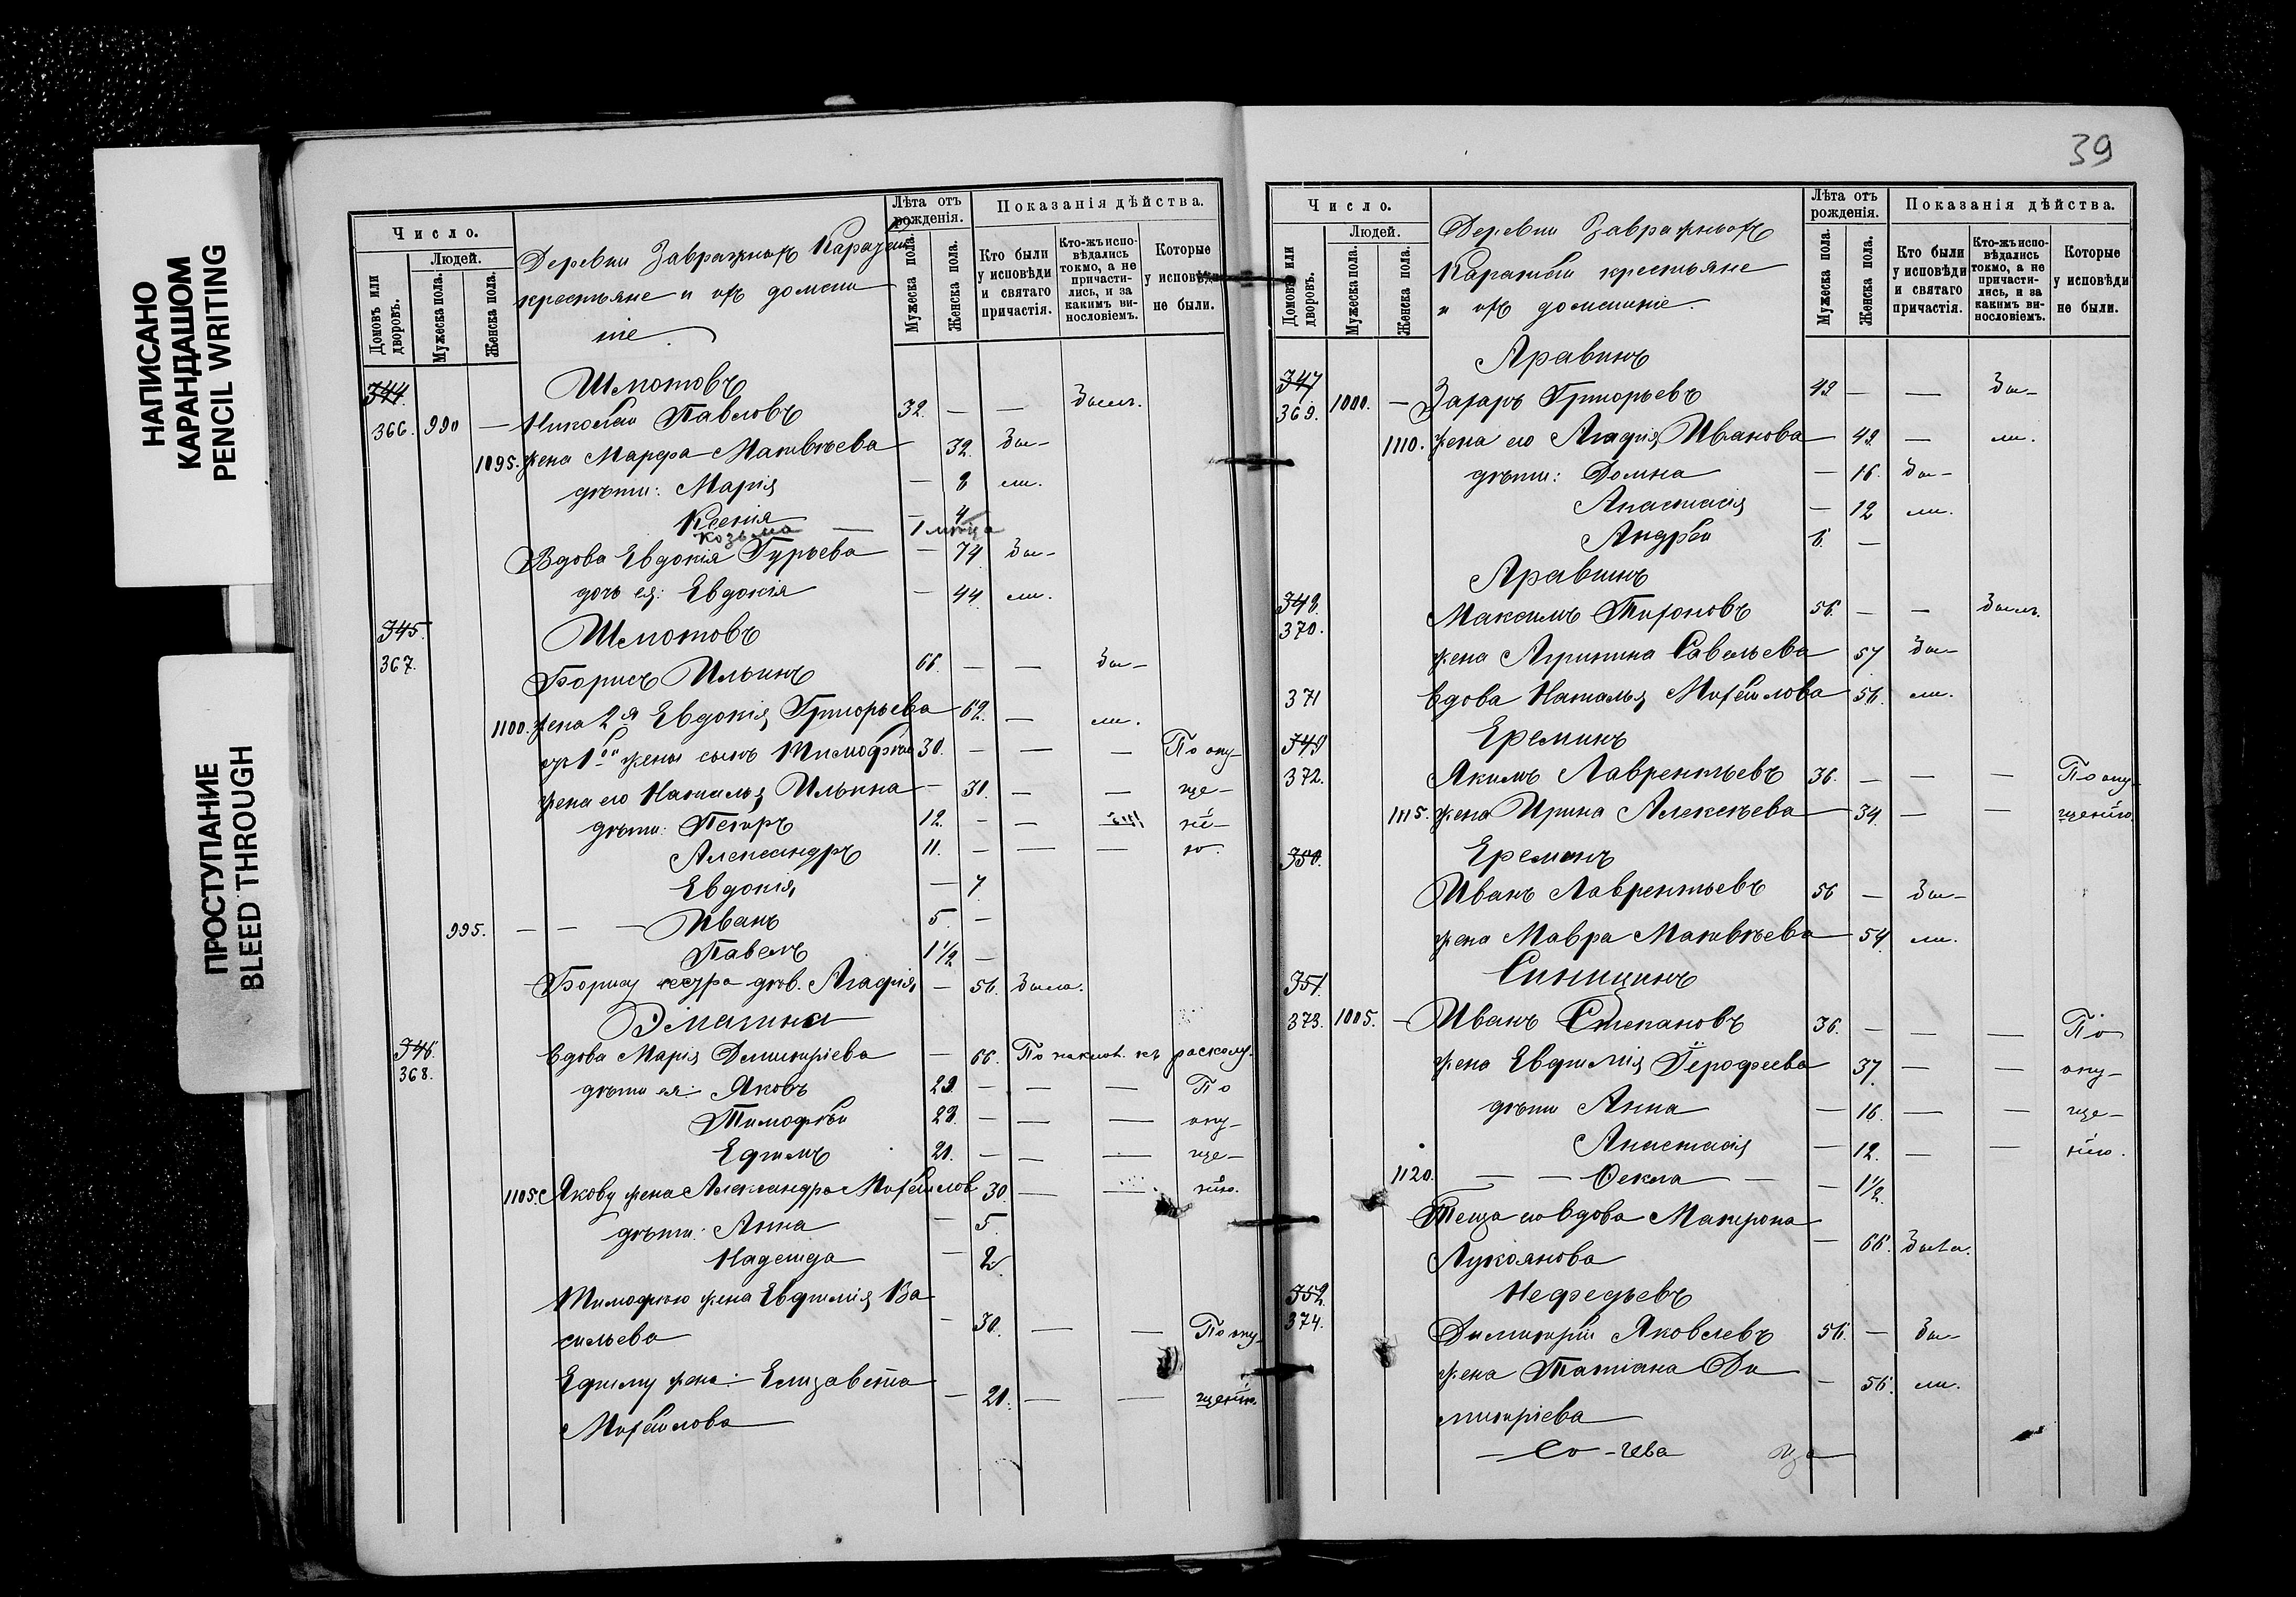 НАПИСАНО
КАРАНДАШОМ
PENCIL WRITING
ПРОСТУПАНИЕ
BLEED THROUGH
Число.
Домовъ или дворовъ.
Людей.
Мужеска пола.
Женска пола.
Деревни Завражныхъ
крестьяне и ихъ домаш
ніе.
Лѣта отъ рождения.
Мужеска пола.
Женска пола.
Показанія дѣйства.
Кто были у исповѣди и святаго причастія.
Кто-жъ исповѣдались токмо, а не причастились, и за какимъ винословіемъ.
Которые у исповѣди не были.
344. Шмотовъ
366. 990 — Николай Павловъ 32. — — Былъ.
1095. жена Марфа Матвѣева 32. Бы-
дѣти: Марія — 8 ли.
Ксенія — 4
Козьма — 1 мѣсяца
Вдова Евдокія Гурьева — 74 Бы-
дочь ея: Евдокія — 44 ли.
345. Шмотовъ
367. Борисъ Ильинъ 66. — — Бы-
1100. жена 2я Евдокія Григорьева 62. — ли.
отъ 1ой жены сынъ Тимофей 30. — — — По опу-
жена его Наталья Ильина — 30. — — ще-
дѣти: Петръ 12. — — ні-
Александръ 11. — — — ю.
Евдокія — 7
995. — — — Иванъ 5. —
Павелъ 1½ —
Борису сестра дѣв. Агафія — 56. Была.
346. 
368. Вдова Марія Димитріева — 66. По наклон. къ расколу.
дѣти ея: Яковъ 29 — — — По
Тимофей 23. — — — опу-
Ефимъ 21. — — — ще-
1105. Якову жена Александра Михайлов 30 — — нію.
дѣти: Анна — 5.
Надежда — 2.
Тимофею жена Евфимія Ва
сильева — 30. — — По опу-
Ефиму жена: Елизавета
Михайлова — 21. — — щенію.
39
Число.
Домовъ или дворовъ.
Людей.
Мужеска пола.
Женска пола.
Деревни Завражныхъ
крестьяне
и ихъ домашніе.
Лѣта отъ рождения.
Мужеска пола.
Женска пола.
Показанія дѣйства.
Кто были у исповѣди и святаго причастія.
Кто-жъ исповѣдались токмо, а не причастились, и за какимъ винословіемъ.
Которые у исповѣди не были.
347 Аравинъ
369. 1000. — Захаръ Григорьевъ 42 — — Бы-
1110. жена его Агафія Иванова — 42. — ли.
дѣти: Домна — 16. Бы-
Анастасія — 12 ли.
Андрей 6. —
Аравинъ
348.
370. Максимъ Тихоновъ 56. — — Былъ.
жена Агрипина Савельева 57 Бы-
371 Вдова Наталья Михайлова 56. ли.
349 Ереминъ
372. Якимъ Лаврентьевъ 36. — — — По опу-
1115. жена Ирина Алексѣева — 34. — — щенію.
350. Ереминъ
Иванъ Лаврентьевъ 56 — Бы-
жена Мавра Матвѣева — 54. ли.
351. Синицинъ
373. 1005. — Иванъ Степановъ 36. — — — По
жена Евфимія Іерофеева 37. — — опу-
дѣти Анна — 16. — — ще-
Анастасія — 12. — — нію.
1120. — — Ѳекла — — 1½
Теща его вдова Матрона
Лукоянова — 66. Была.
352. Нефедьевъ
374. Димитрій Яковлевъ 56. — Бы-
жена Татіана Ди
митріева — 56. ли.